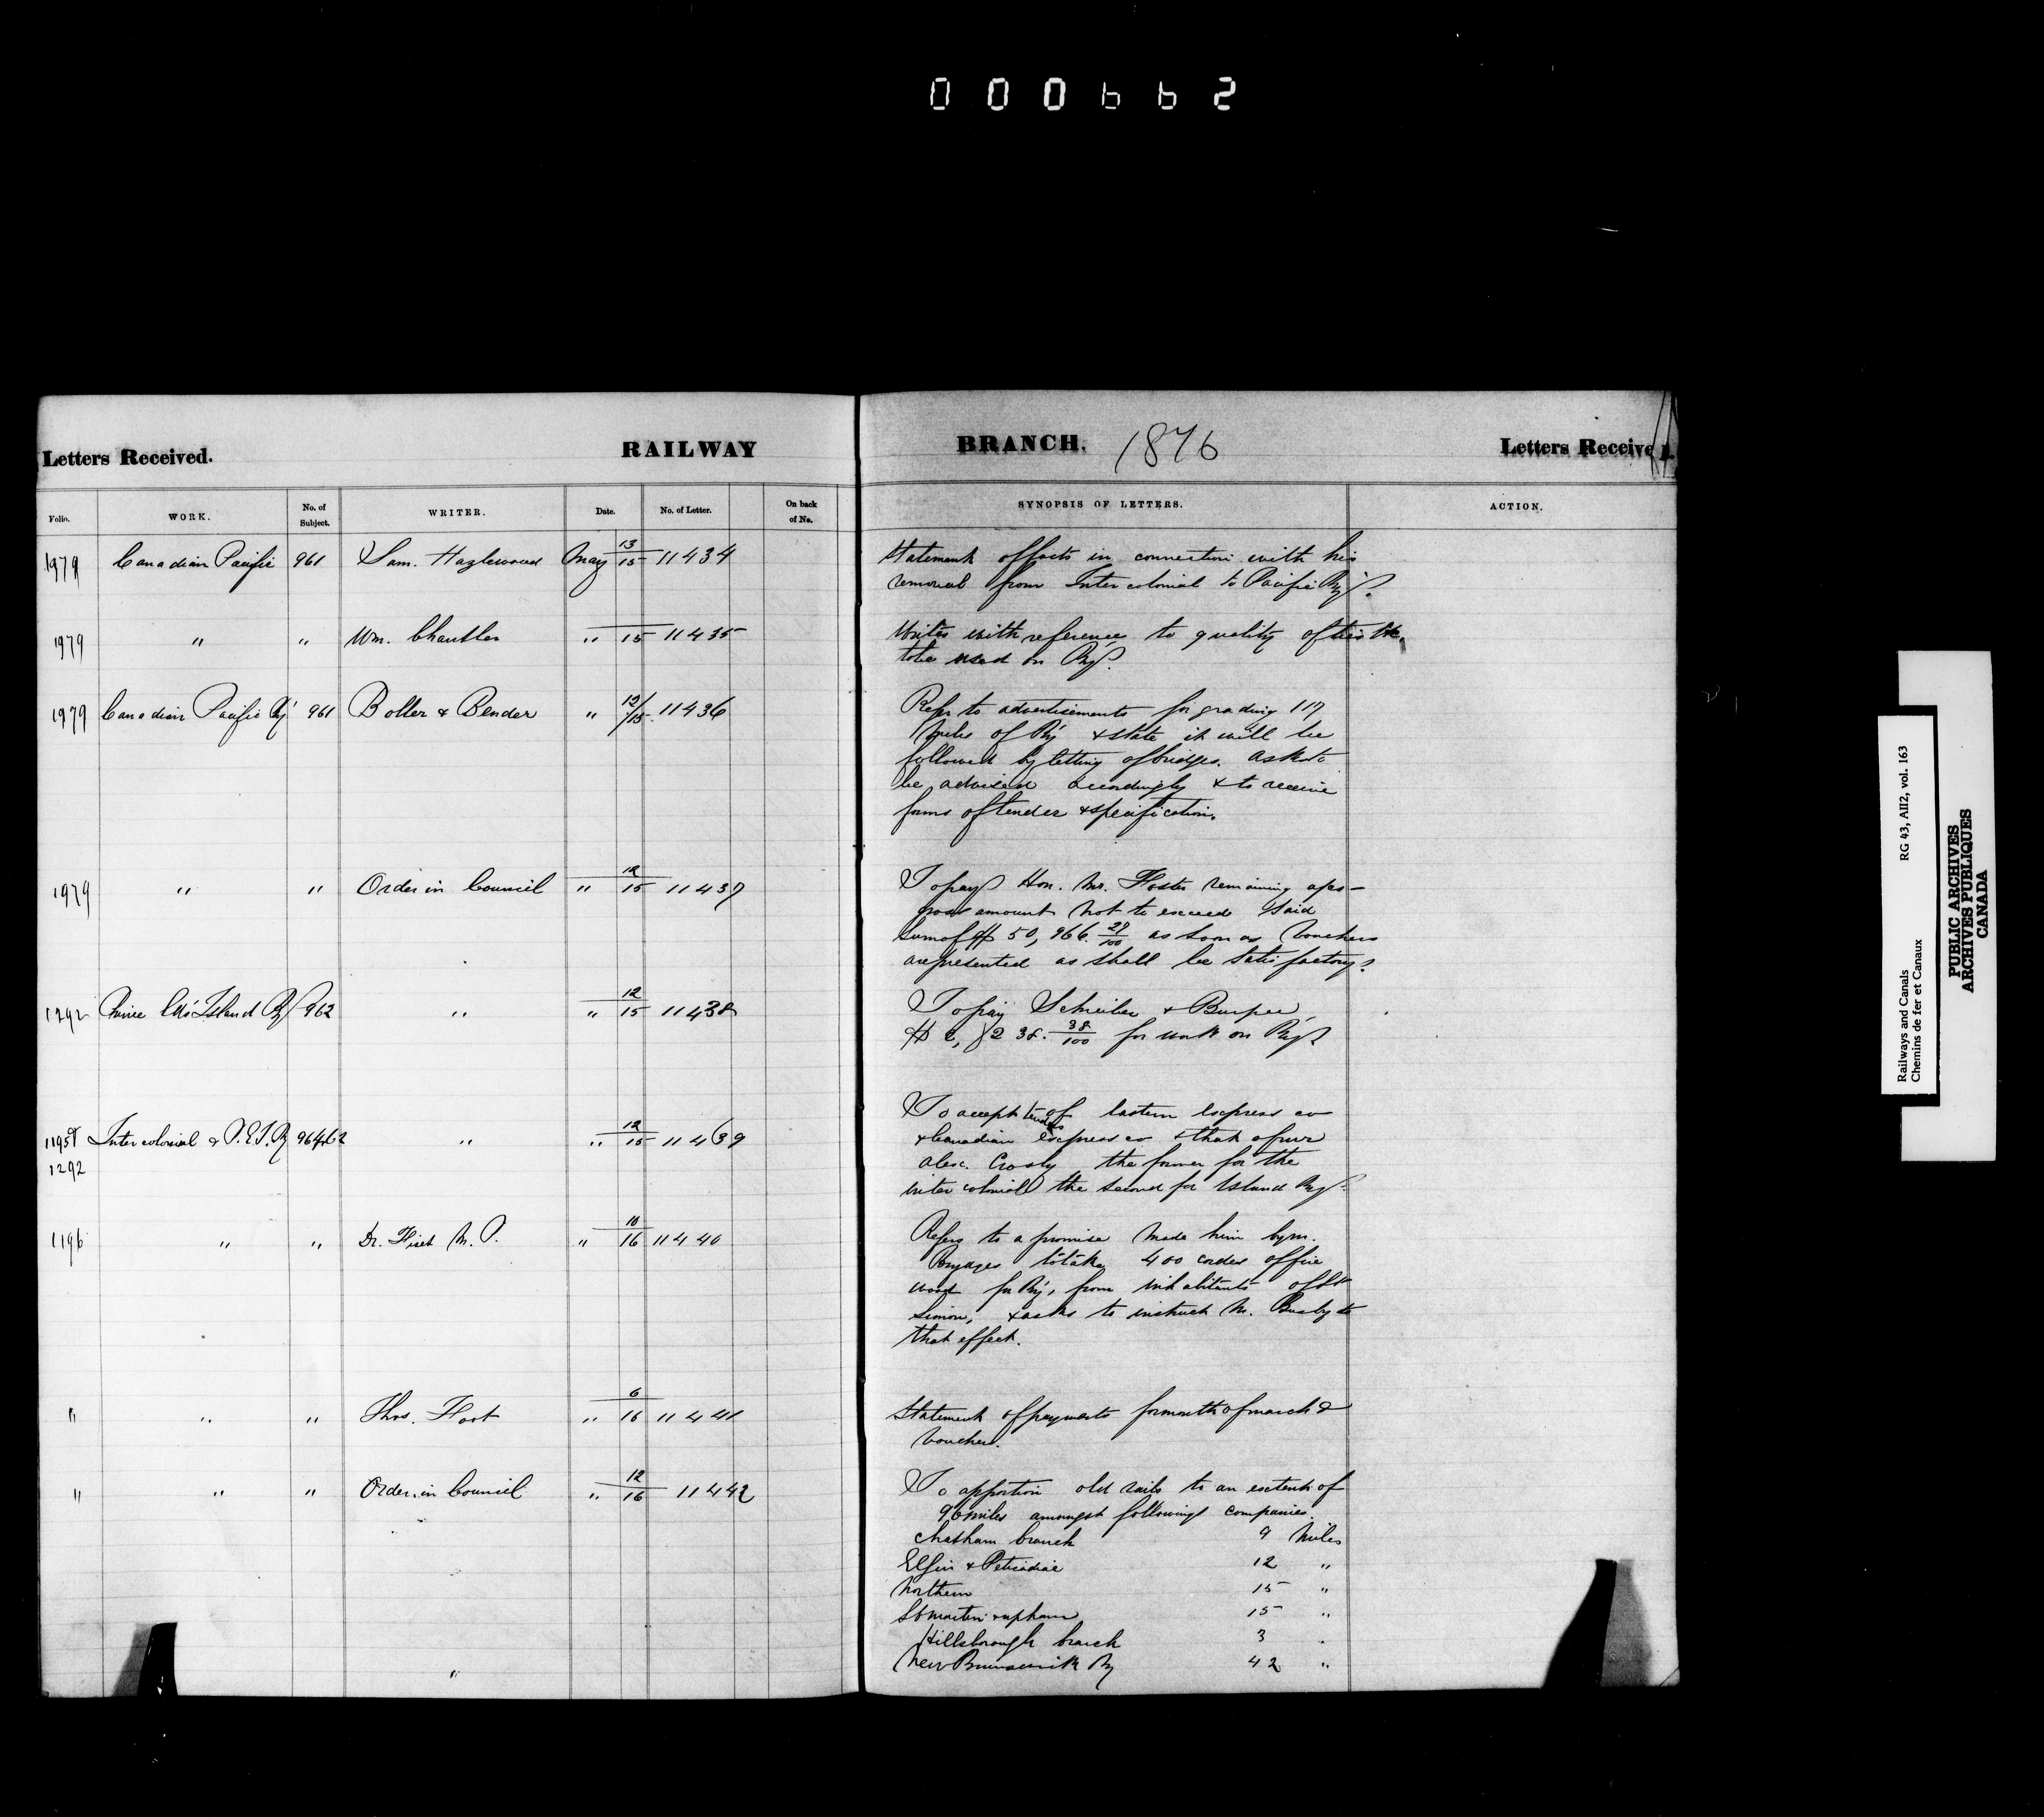 000662
Letters Received. RAILWAY BRANCH. 1876 Letters Received.
Folio. WORK. No. of Subject. WRITER. Date. No. of Letter. On back of No. SYNOPSIS OF LETTERS. ACTION.
1979 Canadian Pacific 961 Sam. Hazlewood May 13/15 11434 Statement of facts in connection with his
removal from Intercolonial to Pacific Ry.
1979 " " Wm. Chantler " 15 11435 Writes with reference to quality of ties &c.
to be used on Ry.
1979 Canadian Pacific Ry 961 Boller & Bender " 12/15 11436 Refer to advertisements for grading 117
miles of Ry & state it will be
followed by letting of bridges. ask to
be advised accordingly & to receive
forms of tender & specification.
1979 " " Order in Council " 12/15 11437 To pay Hon. Mr. Foster remaining
amount not to exceed said
sum of $ 50,966. 29/100 as soon as vouchers
are presented as shall be satisfactory.
1292 Prince Ed's Island Ry 962 " " 12/15 11438 To pay Schreiber & Burpee
38/100 for work on Ry.
1195 Intercolonial & P.E.I. Ry " " 12/15 11439 To accept tenders of Eastern Express co
& Canadian Express co & that of
Alex. Crosby the former for the
Intercolonial the second for Island Ry.
1292
1196 " " Dr. Fiset M.P. " 10/16 11440 Refers to a promise made him by Mr.
to take 400 cordes of fire
wood for Ry, from inhabitants of St
Simon, & asks to instruct Mr. Busby to
that effect.
" " " Thos. Foot " 6/16 11441 Statement of payments for month of march &
voucher.
" " " Order in Council " 12/16 11442 To apportion old rails to an extent of
96 miles amongst following companies.
Chatham branch 9 Miles
Elgin & Peticodiac 12 "
Northern 15 "
St Martin & upham 15 "
Hillsborough branch 3 "
New Brunswick Ry 42 "
"
Railways and Canals RG 43, AII2, vol. 163
Chemins de fer et Canaux
PUBLIC ARCHIVES
ARCHIVES PUBLIQUES
CANADA